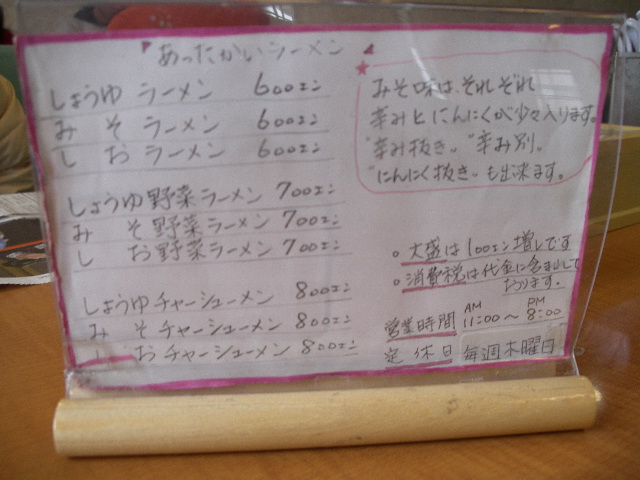 あったかいラーメン
しょうゆ ラーメン 600エン
み そ ラーメン 600エン
し お ラーメン 600エン
しょうゆ野菜ラーメン 700エン
み そ野菜ラーメン 700エン
し お野菜ラーメン 700エン
しょうゆチャーシューメン 800エン
み そチャーシューメン 800エン
し おチャーシューメン 800エン
★
みそ味は、それぞれ
辛みとにんにくが少々入ります。
"辛み抜き"、"辛み別"、
"にんにく抜き"も出来ます。
○大盛は100エン増しです
○消費税は代金に含まれて
おります。
営業時間 AM 11:00〜PM 8:00
定休日 毎週木曜日